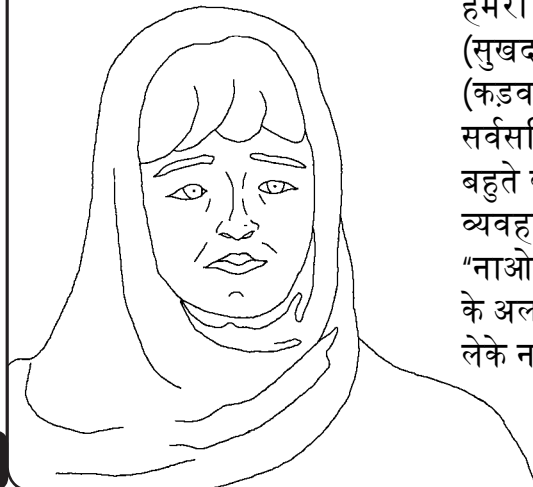 हमरा
(सुखद
(कड़व
सर्वस
बहुते
व्यवह
“नाओ
के अल
लेके न